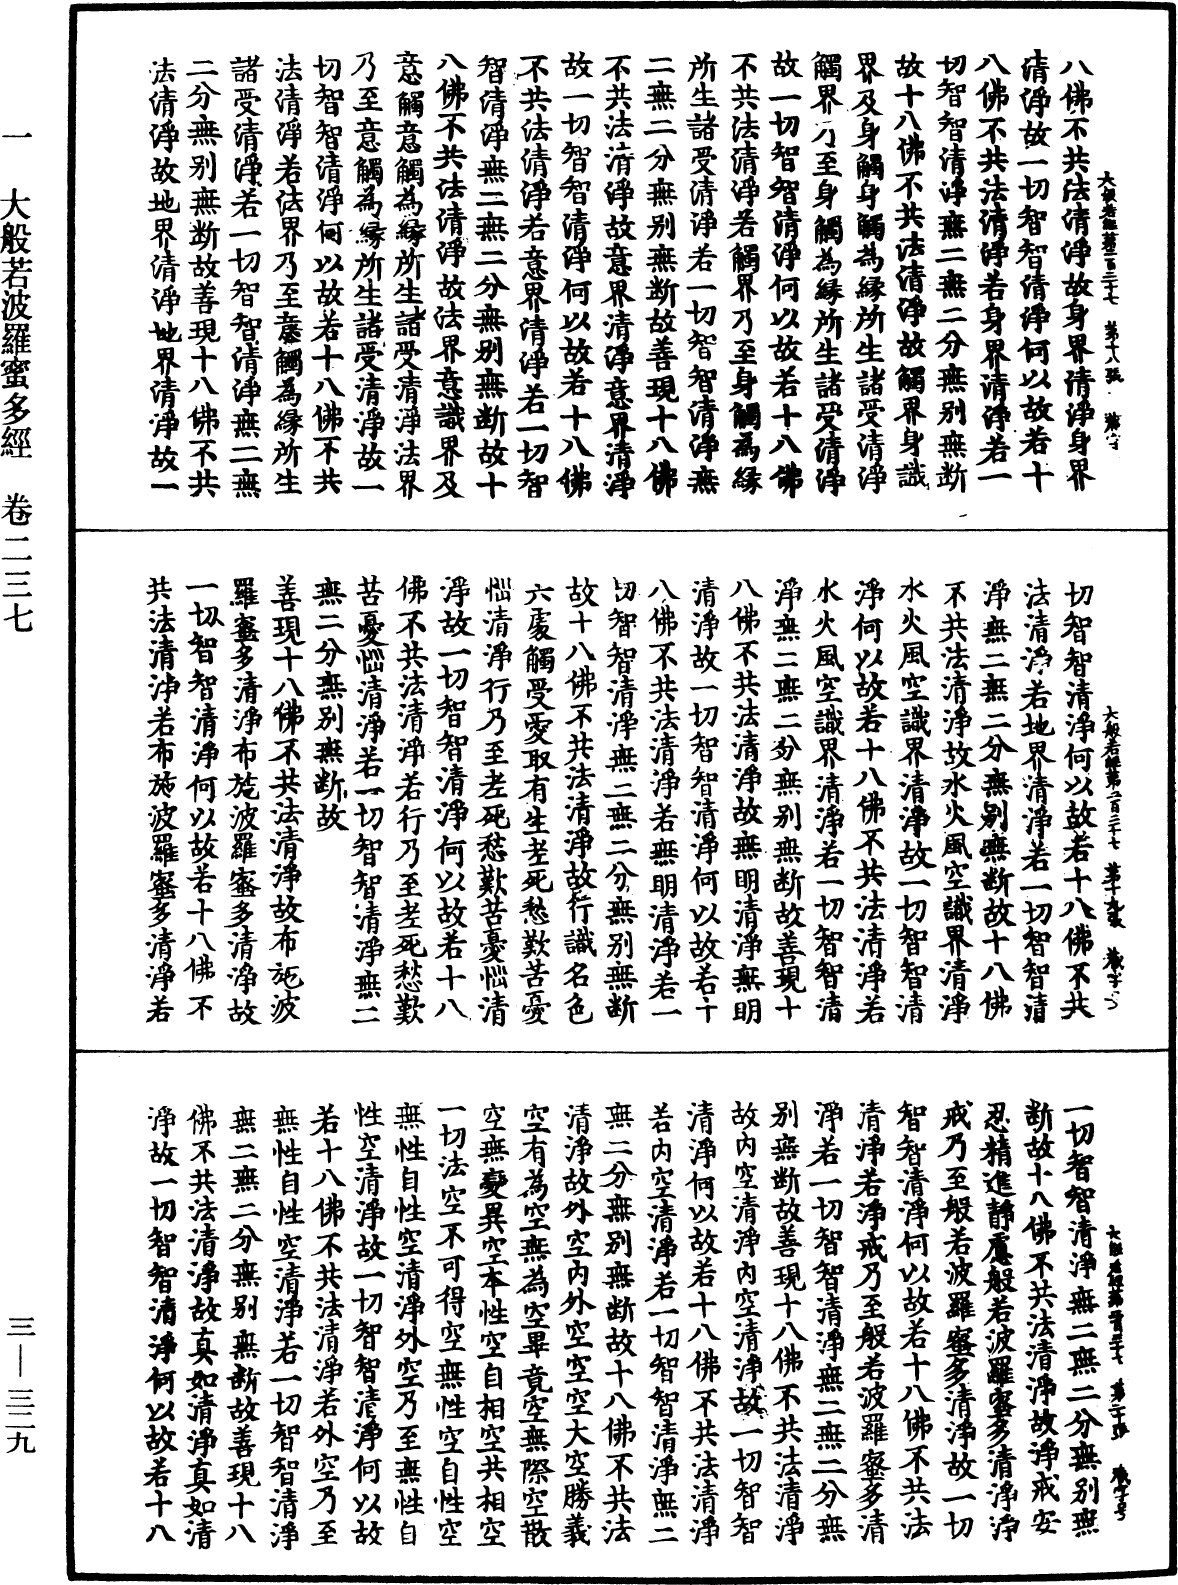 八佛不共法清淨故身界清淨身界
清淨故一切智智清淨何以故若十
八佛不共法清淨若身界清淨若一
切智智清淨無二無二分無别無断
故十八佛不共法清淨故觸界身識
界及身觸身觸為縁所生諸受清淨
觸界乃至身觸為縁所生諸受清淨
故一切智智清淨何以故若十八佛
不共法清淨若觸界乃至身觸為縁
所生諸受清淨若一切智智清淨無
二無二分無别無断故善現十八佛
不共法清淨故意界清淨意界清淨
故一切智智清淨何以故若十八佛
不共法清淨若意界清淨若一切智
智清淨無二無二分無别無断故十
八佛不共法清淨故法界意識界及
意觸意觸為縁所生諸受清淨法界
乃至意觸為縁所生諸受清淨故一
切智智清淨何以故若十八佛不共
法清淨若法界乃至意觸為縁所生
諸受清淨若一切智智清淨無二無
二分無别無断故善現十八佛不共
法清淨故地界清淨地界清淨故一
大般若經第二百三十七 第十八張
切智智清淨何以故若十八佛不共
法清淨若地界清淨若一切智智清
淨無二無二分無别無断故十八佛
不共法清淨故水火風空識界清淨
水火風空識界清淨故一切智智清
淨何以故若十八佛不共法清淨若
水火風空識界清淨若一切智智清
淨無二無二分無别無断故善現十
八佛不共法清淨故無明清淨無明
清淨故一切智智清淨何以故若十
八佛不共法清淨若無明清淨若一
切智智清淨無二無二分無别無断
故十八佛不共法清淨故行識名色
六處觸受愛取有生老死愁歎苦憂
惱清淨行乃至老死愁歎苦憂惱清
淨故一切智智清淨何以故若十八
佛不共法清淨若行乃至老死愁歎
苦憂惱清淨若一切智智清淨無二
無二分無别無断故
善現十八佛不共法清淨故布施波
羅蜜多清淨布施波羅蜜多清淨故
一切智智清淨何以故若十八佛不
共法清淨若布施波羅蜜多清淨若
大般若經第二百三十七 第十九張
一切智智清淨無二無二分無别無
断故十八佛不共法清淨故淨戒安
忍精進靜慮般若波羅蜜多清淨淨
戒乃至般若波羅蜜多清淨故一切
智智清淨何以故若十八佛不共法
清淨若淨戒乃至般若波羅蜜多清
淨若一切智智清淨無二無二分無
别無断故善現十八佛不共法清淨
故内空清淨内空清淨故一切智智
清淨何以故若十八佛不共法清淨
若内空清淨若一切智智清淨無二
無二分無别無断故十八佛不共法
清淨故外空内外空空空大空勝義
空有為空無為空畢竟空無際空散
空無變異空本性空自相空共相空
一切法空不可得空無性空自性空
無性自性空清淨外空乃至無性自
性空清淨故一切智智清淨何以故
若十八佛不共法清淨若外空乃至
無性自性空清淨若一切智智清淨
無二無二分無别無断故善現十八
佛不共法清淨故真如清淨真如清
淨故一切智智清淨何以故若十八
大般若經第二百三十七 第二十張
一 大般若波羅蜜多經 卷二三七
三—三二九